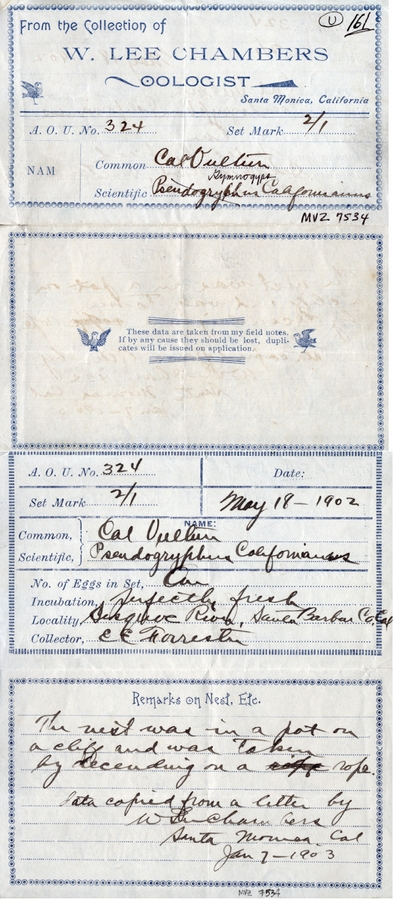 U 161
From the Collection of
W. LEE CHAMBERS
OOLOGIST
Santa Monica, California
A. O. U. No. 324 Set Mark 2/1
NAM
Common Cal Vulture
Gymnogyps
Scientific Pseudogryphus Californianus
MVZ 7534
These data are taken from my field notes.
If by any cause they should be lost, dupli-
cates will be issued on application.
A. O. U. No. 324 Date:
Set Mark 2/1 May 18 - 1902
NAME:
Common, Cal Vulture
Scientific, Pseudogryphus Californianus
No. of Eggs in Set, One
Incubation, perfectly fresh
Locality, River, Santa Barbar Co, Cal
Collector, E E Forrester
Remarks on Nest, Etc.
The nest was in a pot on
a cliff and was taken
by decending on a rope.
Data copied from a letter by
W Lee Chambers
Santa Monica, Cal
Jan 7 - 1903
MVZ 7534